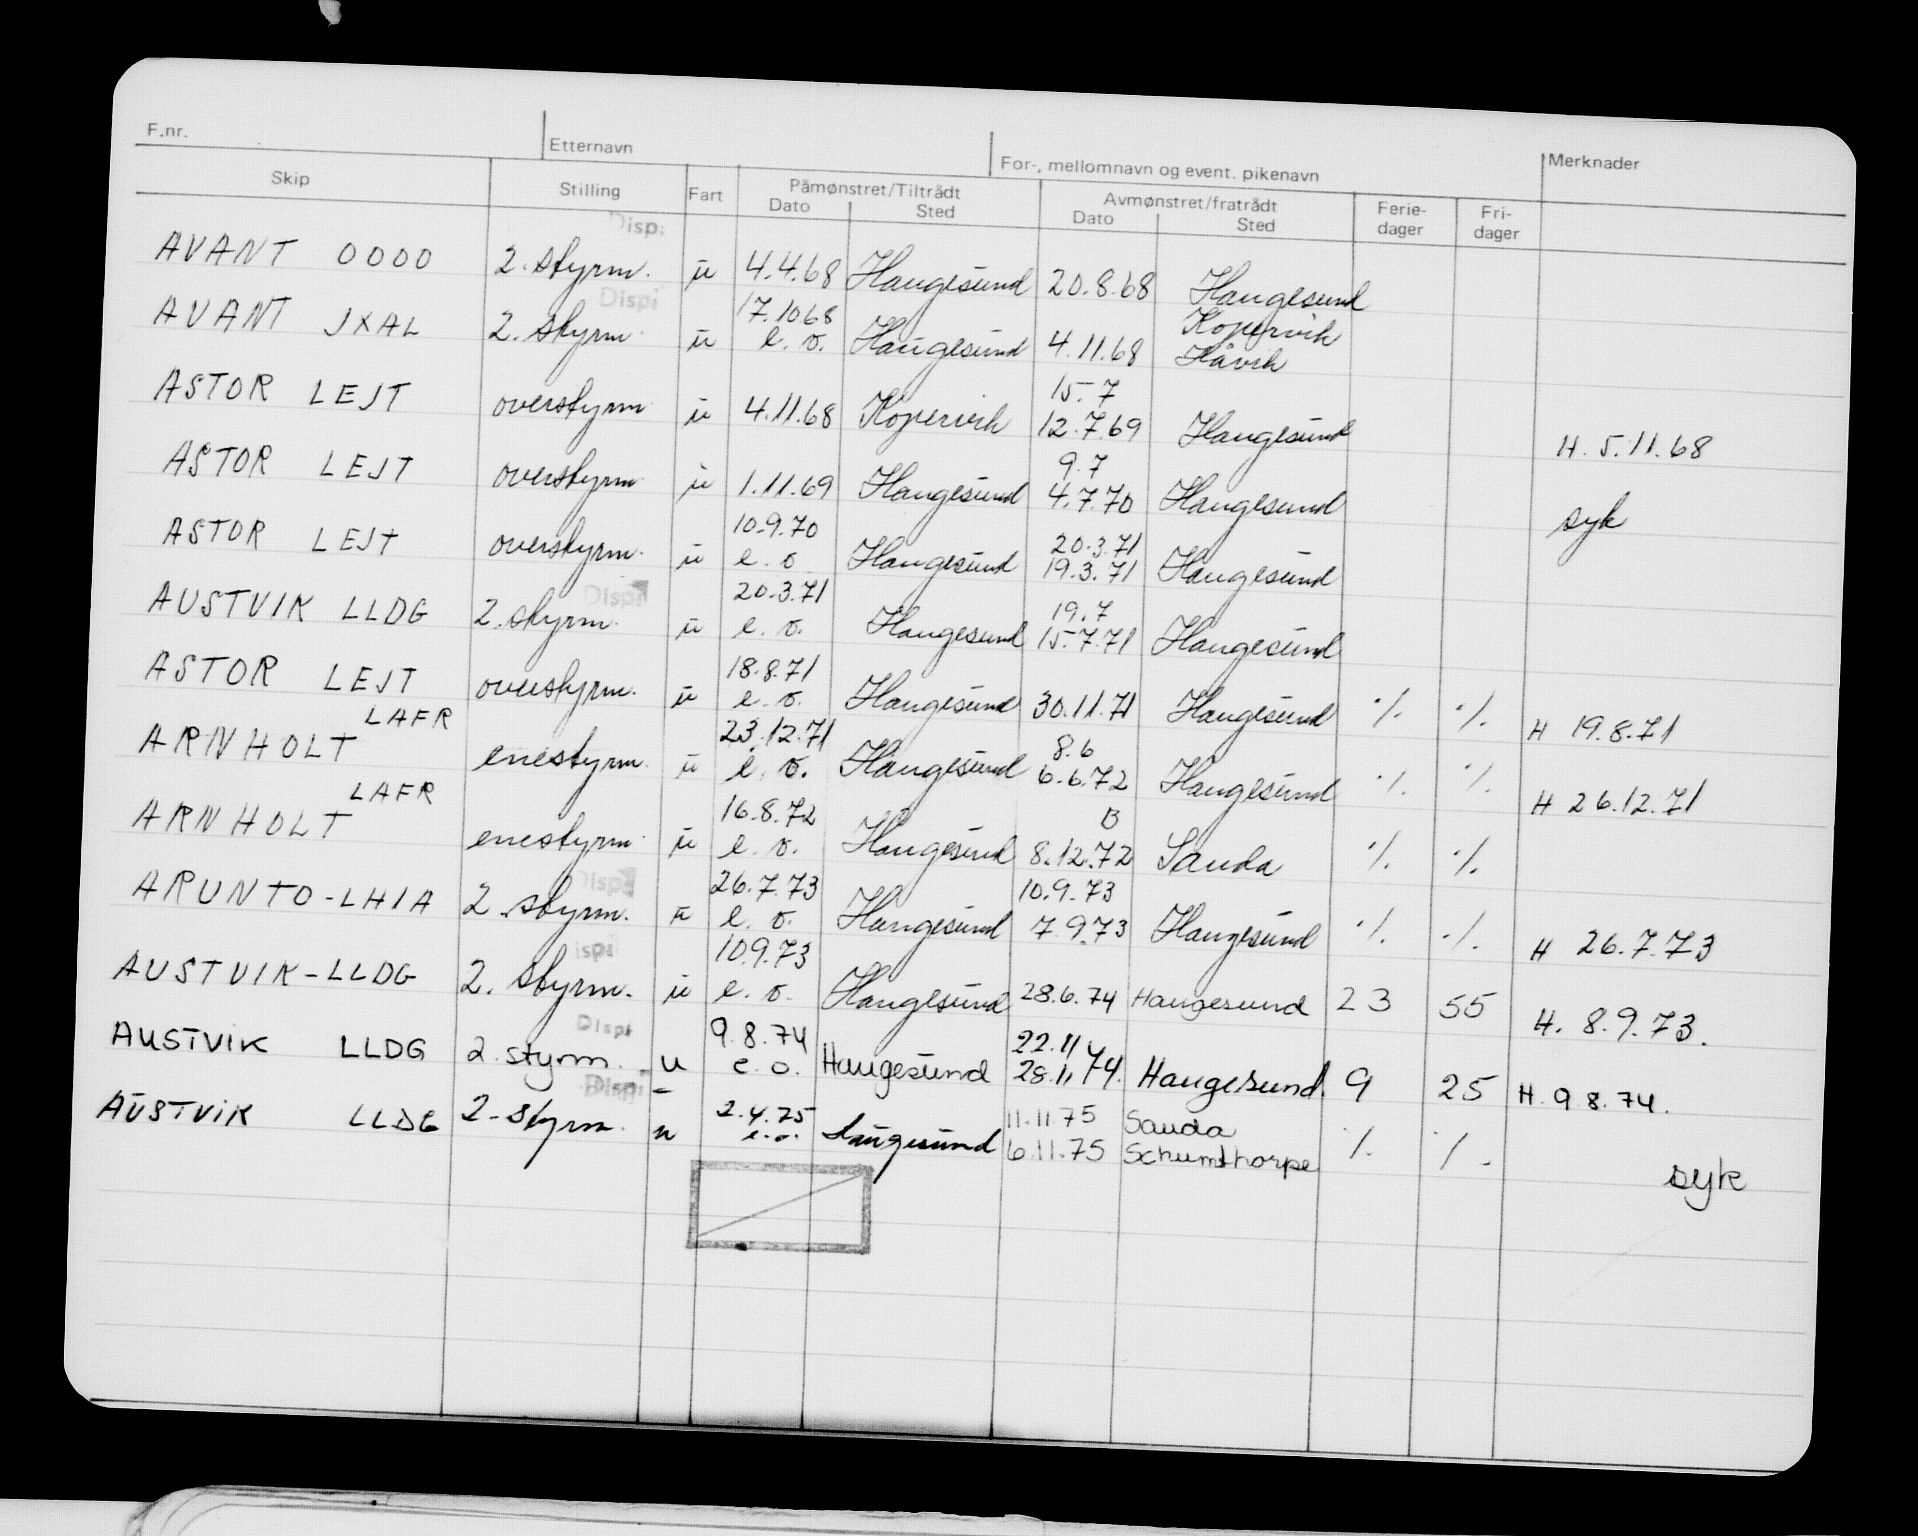 F.nr. Etternavn For-, mellomnavn og event. pikenavn Merknader
Skip Stilling Fart Påmønstret/Tiltrådt Avmønstret/fratrådt Ferie-dager Fri-dager
Dato Sted Dato Sted
Disp.
AVANT OOOO 2. styrm. u 4.4.68 Haugesund 20.8.68 Haugesund
Dispi
17.10 68 Kopervik
AVANT JXAL 2. styrm u e. o. Haugesund 4.11.68 Håvik
15.7
ASTOR LEJT overstyrm u 4.11.68 Kopervik 12.7.69 Haugesund H. 5.11.68
9.7
ASTOR LEJT overstyrm u 1.11.69 Haugesund 4.7.70 Haugesund syk
10.9.70 20.3.71
ASTOR LEJT overstyrm. u e. o Haugesund 19.3.71 Haugesund
Dispi
20.3.71 19.7
AUSTVIK LLDG 2. styrm. u e. o. Haugesund 15.7.71 Haugesund
18.8.71
ASTOR LEJT overstyrm. u e. o. Haugesund 30.11.71 Haugesund ·/. ·/. H 19.8.71
LAFR 23.12.71 8.6
ARNHOLT enestyrm. u e. o. Haugesund 6.6.72 Haugesund ·/. ·/. H 26.12.71
LAFR 16.8.72 B
ARNHOLT enestyrm. u e. o. Haugesund 8.12.72 Sauda ·/. ·/.
Dispi
26.7.73 10.9.73
ARUNTO-LHIA 2. styrm. u e. o. Haugesund 7.9.73 Haugesund ·/. ·/. H 26.7.73
ispi
10.9.73
AUSTVIK-LLDG 2. styrm. u e. o. Haugesund 28.6.74 Haugesund 23 55 H. 8.9.73.
Dispi
9.8.74 22.11
AUSTVIK LLDG 2. styrm. u e. o. Haugesund 28.11.74. Haugesund. 9 25 H. 9 8.74.
Dispi
2.4.75 11.11 75 Sauda
AUSTVIK LLDG 2. styrm. u e.o. Haugesund 6.11.75 Schumthorpe ·/. ·/. syk